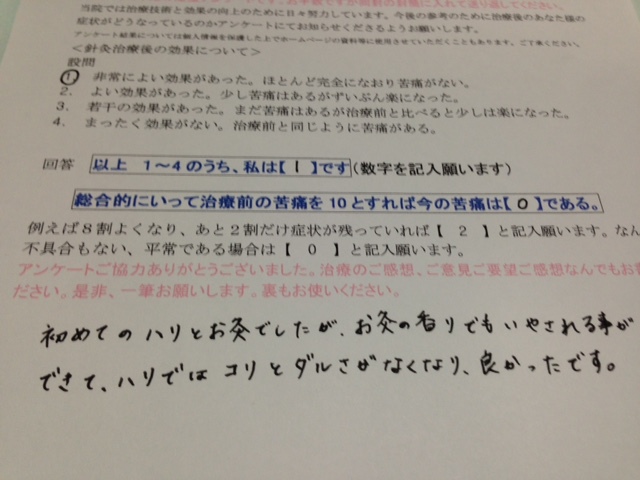 お手数ですが同封の封筒に入れて送り返してください。
当院では治療技術と効果の向上のために日々努力しています。今後の参考のために治療後のあなた様の
症状がどうなっているのかアンケートにてお知らせくださるようお願いします。
アンケート結果については個人情報を保護した上でホームページの資料等に使用させていただくこともあります。ご了承ください。
<針灸治療後の効果について>
設問
1. 非常によい効果があった。ほとんど完全になおり苦痛がない。
2. よい効果があった。少し苦痛はあるがずいぶん楽になった。
3. 若干の効果があった。まだ苦痛はあるが治療前と比べると少しは楽になった。
4. まったく効果がない。治療前と同じように苦痛がある。
回答 以上 1~4のうち、私は【 1 】です(数字を記入願います)
総合的にいって治療前の苦痛を10とすれば今の苦痛は【 0 】である。
例えば8割よくなり、あと2割だけ症状が残っていれば【 2 】と記入願います。なん
不具合もない、平常である場合は【 0 】と記入願います。
アンケートご協力ありがとうございました。治療のご感想、ご意見ご要望ご感想なんでもお
ださい。是非、一筆お願いします。裏もお使いください。
初めてのハリとお灸でしたが、お灸の香りでもいやされる事が
できて、ハリではコリとダルさがなくなり、良かったです。